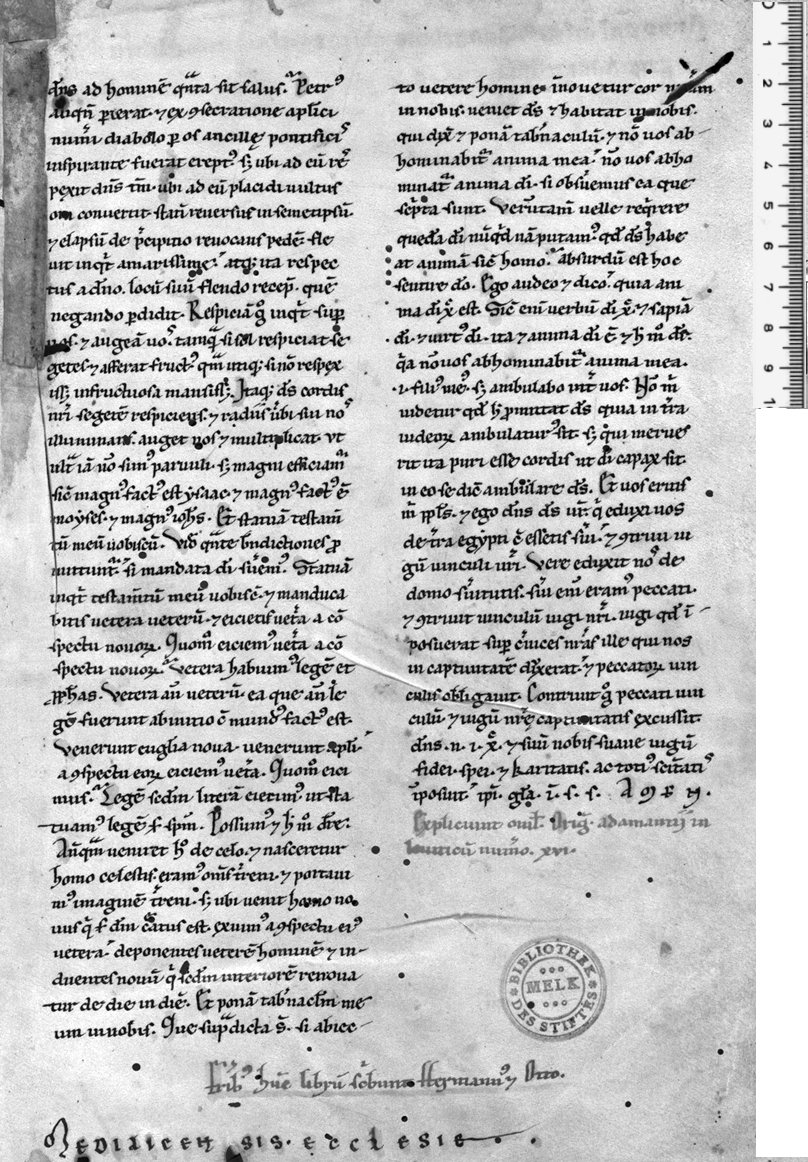 dñs ad hominẽ q̃nta sit salus. Petrꝰ
aliqñ perierat. ⁊ ex ꝯsecratione apłici
numi diabolo ꝑ os ancillę pontificiˢ
inspirante fuerat ereptꝰ. sꝫ ubi ad eũ reˢ
pexit dñs tm̃. ubi ad eũ placidi uultus
om conuertit. statĩ reuersus in semetipsũ.
⁊ elapsũ de p̃cipitio reuocans pedẽ. fle
uit inqͭt amarissime. atqꝫ ita respec
tus a dño. locũ suũ flendo recep̃. quẽ
negando ꝑdidit. Respiciã gͦ inqͭt sup̃
uos. ⁊ augeã uoˢ. tamq̃ si sol respiciat se
getes ⁊ afferat fructꝰ. qm̃ utiqꝫ si nõ respex
issꝫ. infructuosa mansissꝫ. Itaqꝫ dˢ cordis
nr̃i segetẽ respiciens. ⁊ radiis ũbi sui noˢ
illuminans. auget nos ⁊ multiplicat. vt
ult̃ iã nõ simꝰ paruuli. sꝫ magni efficiamᷣ
sic̃ magnꝰ factꝰ est ysaac. ⁊ magnꝰ factꝰ ẽ
moyses. ⁊ magnꝰ iohs̃. Et statuã testam̃
tũ meũ uobiscũ. Vid̃ q̃nte bn̄dictiones ꝓ
mittunt̃. si mandata di suem̃ꝰ. Statuã
inqͭt testam̃tũ meũ uobisc̃. ⁊ manduca
bitis uetera ueterũ. ⁊ eicietis uet̃a a cõ
spectu nouoꝝ. Quom̃ eiciemꝰ uet̃a a cõ
spectu nouoꝝ. Vetera habuimꝰ legẽ et
ꝓph̃as. Vetera aũ ueterũ. ea que añ le
gẽ fuerunt ab initio c̃ mundꝰ factꝰ est.
Venerunt euglia noua. uenerunt apłi.
a ꝯspectu eoꝝ eiciemꝰ uet̃a. Quom̃ eici
mus. Legẽ scd̃m litterã eicimꝰ. ut sta
tuamꝰ legẽ s̃ sp̃m. Possumꝰ ⁊ h̃ m̃ dr̃e.
Anq̃m ueniret h̃ de celo. ⁊ nasceretur
homo celestis. eramꝰ om̃s t̃reni. ⁊ portaui
mꝰ imaginẽ t̃reni. sꝫ ubi uenit homo no
uus q̃ s̃ dm̃ c̃atus est. exuimꝰ a ꝯspectu eiꝰ
uetera. deponentes ueterẽ hominẽ ⁊ in-
duentes nouũ q̃ scd̃m interiorẽ renoua
tur de die in diẽ. Et ponã tab̃nacłm me
um in uobis. Que sup̃dicta s̃. si abiec-
to uetere homine. ĩnouetur cor nr̃um
in nobis. ueniet dˢ ⁊ habitat in nobis.
qui dix̃ ⁊ ponã tab̃naculũ. ⁊ nõ uos ab-
hominabit̃ anima mea. nõ uos abho
minat̃ anima di. si obsũemus ea que
sc̃pta sunt. Verũtam̃ uelle req̃rere
queda di nũqͥd nã putamꝰ. qd̃ dˢ habe
at animã sic̃ homo. Absurdũ est hoc
sentire dõ. Ego audeo ⁊ dico. quia ani
ma di x̃ est. Sic̃ enĩ verbũ di x̃. ⁊ sapiã
di. ⁊ uirtꝰ di. ita ⁊ anima di ẽ ⁊ h̃ m̃ dr̃.
q̃a nõ uos abhominabit̃ anima mea.
.i. filiꝰ meꝰ. sꝫ ambulabo int̃ uos. Nõ m̃
uidetur qd̃ h̃ ꝓmittat dˢ quia in t̃ra
iudeoꝝ ambulaturꝰ sit. sꝫ q̃ui merues
rit ita puri esse cordis ut di capax sit.
in eo se dic̃ ambulare dˢ. Et uos eritis
m̃ ppłs. ⁊ ego dñs dˢ ur̃. q̃ eduxi uos
de t̃ra egypti c̃ essetis sũi. ⁊ ꝯtriui iu
gũ uinculi ur̃i. Vere eduxit noˢ de
domo sũitutis. sũi eni eramꝰ peccati.
⁊ ꝯtriuit uinculũ iugi nr̃i. iugi qd̃ ĩ-
posuerat sup̃ c̃uices nr̃as ille qui nos
in captiuitatẽ duxerat. ⁊ peccatoꝝ uin
culis obligauit. Contriuit gͦ peccati uin
culũ ⁊ iugũ nr̃ę captiuitatis excussit.
dñs. n. i. x̃. ⁊ suũ nobis suaue iugũ
fidei. spei. ⁊ karitatis. ac totiꝰ scitatiˢ
ĩposuit. ip̃i. gła. ĩ. s. s. A M E N.
Expliciunt omł. Orig̃. adamantij in
leuiticũ numo. xvi.
frib̃ꝰ hũc librũ sc̃bunt Hermannꝰ ⁊ Otto.
BIBLIOTHEK
MELK
DES STIFTES